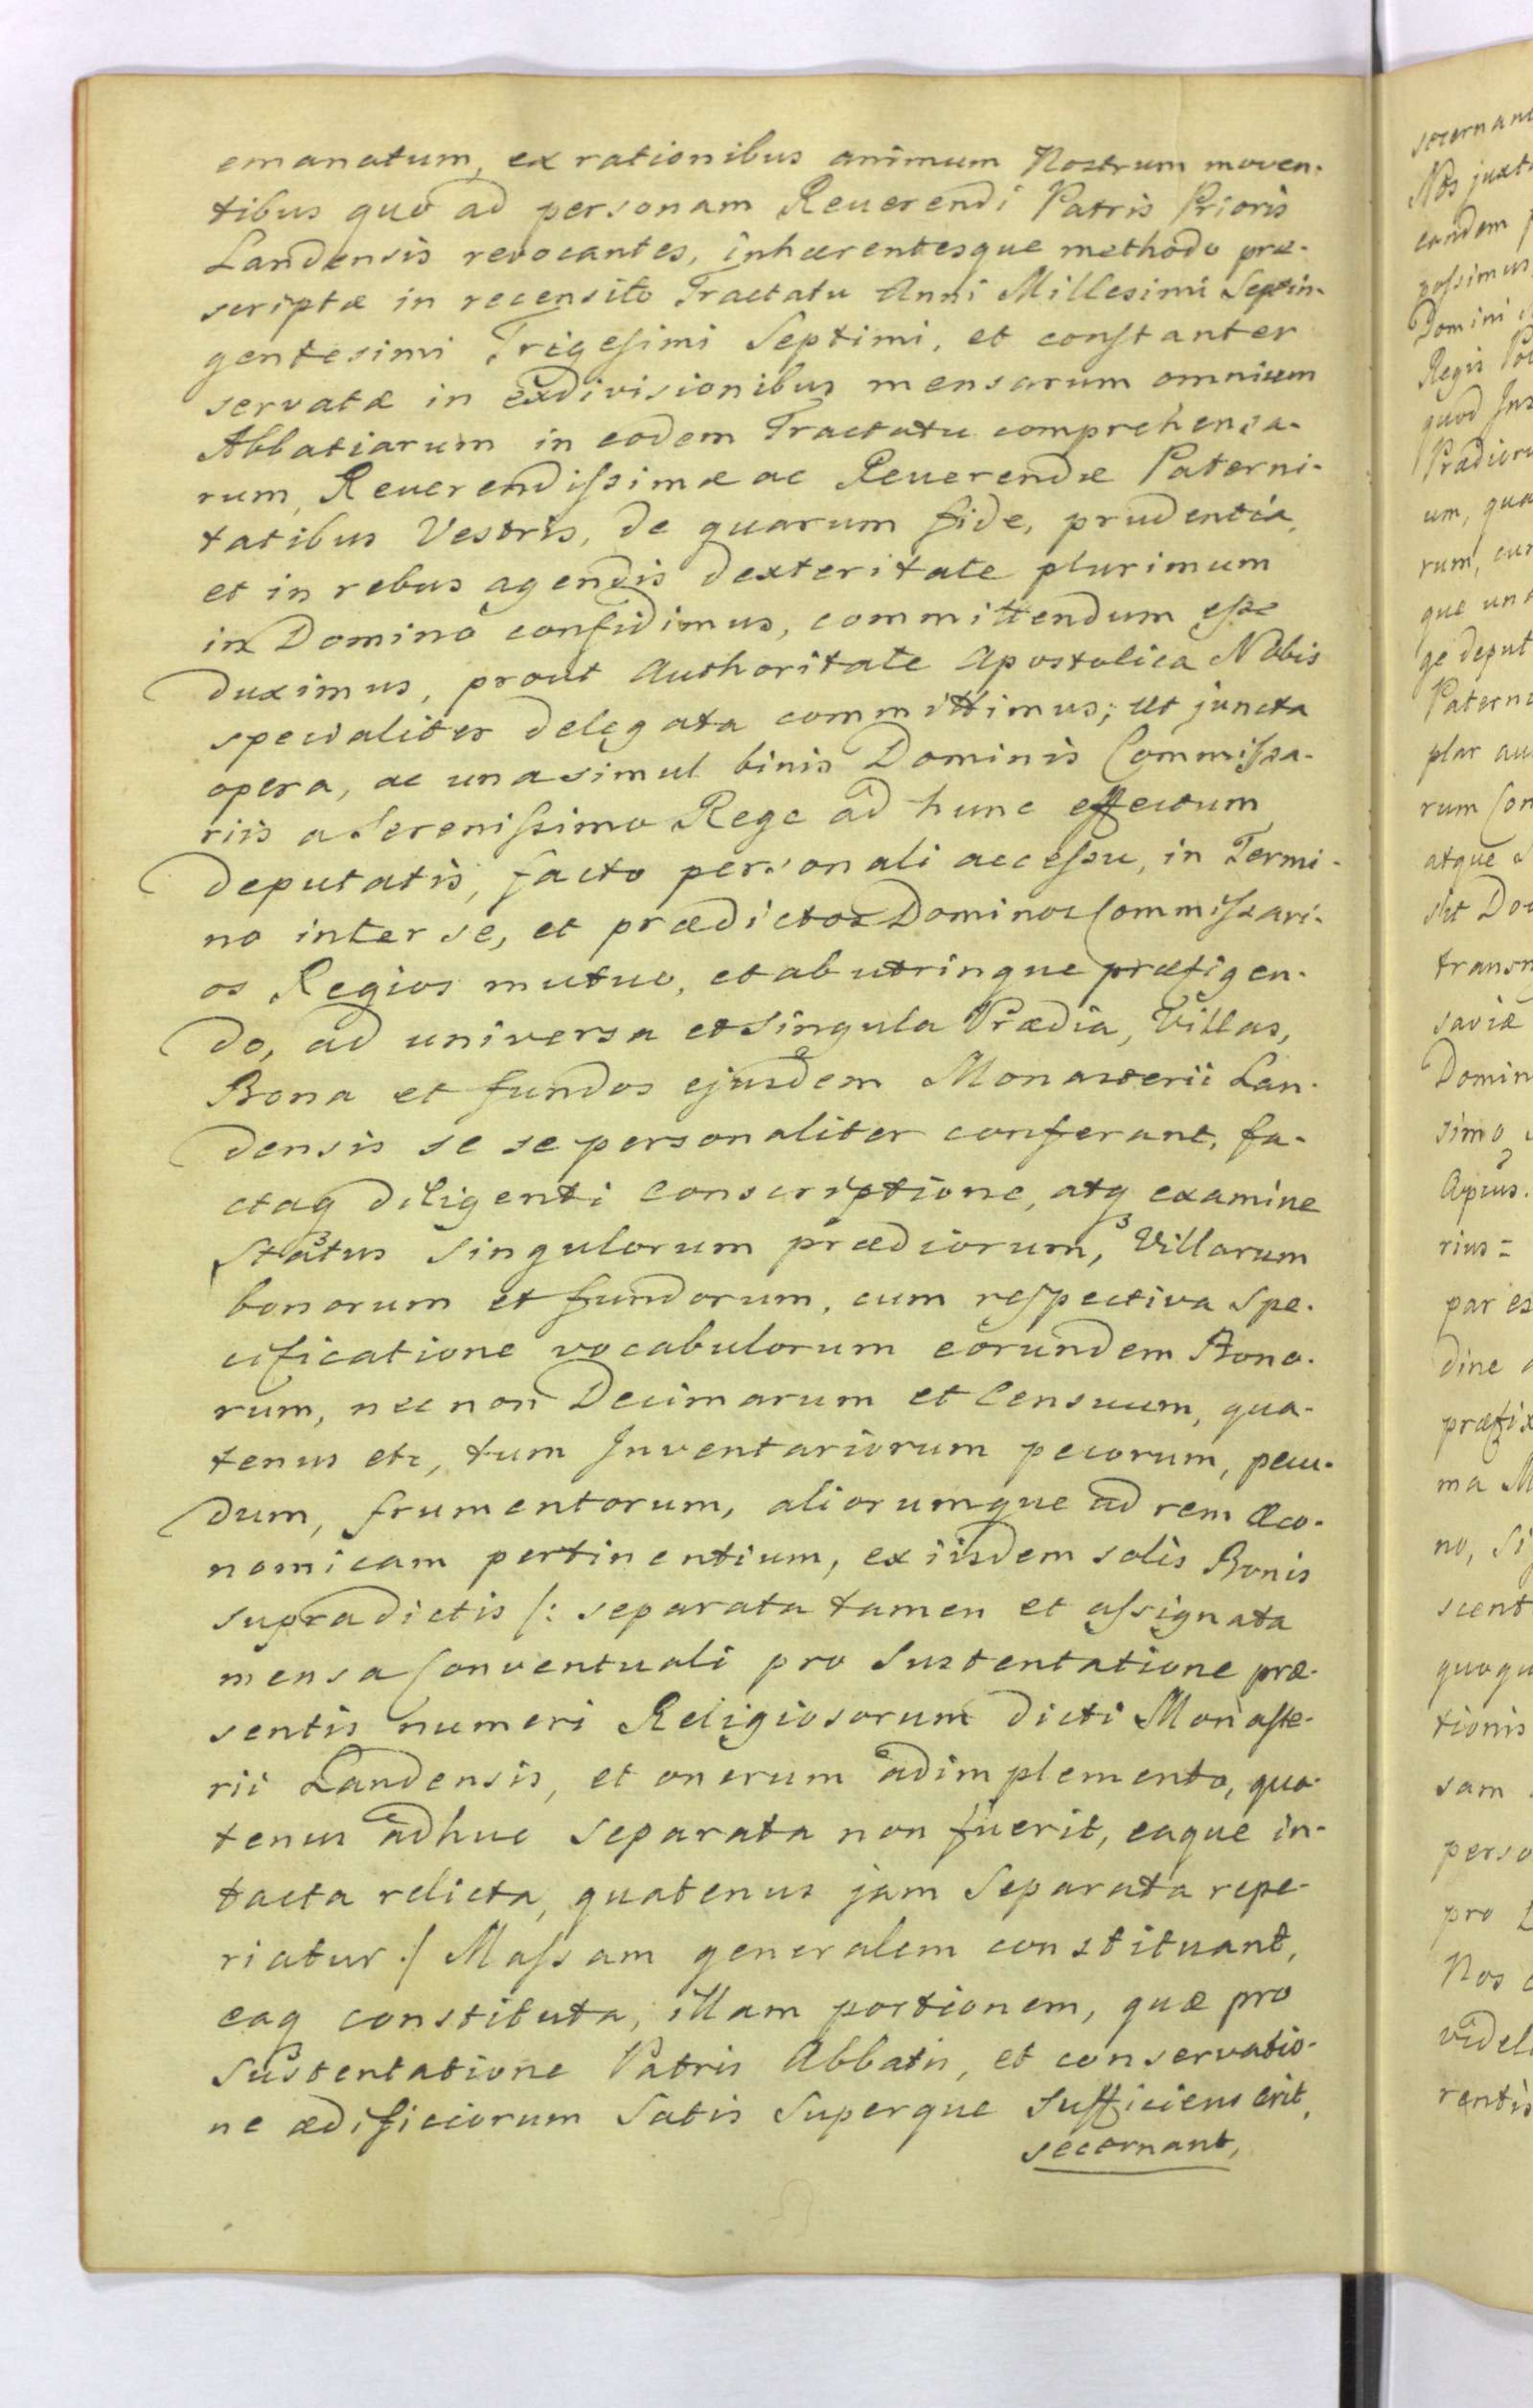 emanatum, ex rationibus animum Nostrum moven-
tibus quo ad personam Reuerendi Patris Prioris
Landensis revocantes, inhærentesque methodo præ-
scriptæ in recensito Tractatu Anni Millesimi Septin-
gentesimi Trigesimi Septimi, et constanter
servatæ in exdivisionibus mensarum omnium
Abbatiarum in eodem Tractatu comprehensa-
rum, Reuerendissimæ ac Reuerendæ Paterni-
tatibus Vestris, de quarum fide, prudentia,
et in rebus agendis dexteritate plurimum
in Domino confidimus, committendum esse
duximus, prout Authoritate Apostolica Nobis
specialiter delegata committimus; ut juncta
opera, ac una simul binis Dominis Commissa-
riis a Serenissimo Rege ad hunc effectum
deputatis, facto personali accessu, in Termi-
no inter se, et prædictos Dominos Commissari-
os Regios mutuo, et ab utrinque præfigen-
do, ad universa et singula Prædia, Villas,
Bona et fundos ejusdem Monasterii Lan-
densis se se personaliter conferant, fa-
ctaqꝫ diligenti conscriptione, atqꝫ examine
Status singulorum prædiorum, Villarum
bonorum et fundorum, cum respectiva Spe-
cificatione vocabulorum eorundem Bono-
rum, nec non Decimarum et Censuum, qua-
tenus etc, tum Inventariorum pecorum, pecu-
dum, frumentorum, aliorumque ad rem æco-
nomicam pertinentium, ex iisdem solis Bonis
supradictis /: separata tamen et assignata
mensa Conventuali pro Sustentatione præ-
sentis numeri Religiosorum dicti Monaste-
rii Landensis, et onerum adimplemento, qua-
tenus adhuc separata non fuerit, eaque in-
tacta relicta, quatenus jam Separata repe-
riatur ./ Massam generalem constituant,
eaqꝫ constituta, illam portionem, quæ pro
Sustentatione Patris Abbatis, et conservatio-
ne ædificiorum Satis Superque sufficiens erit,
secernant,
secernant
Nos juxta
eandem
possimus
Domini
Regis
quod
um, qua
rum,
que
ge deput
plar
rum
atque
saviæ
simo
rius =
par
dine
præfix
no,
tionis
sam
pro
Nos
videl
rentis